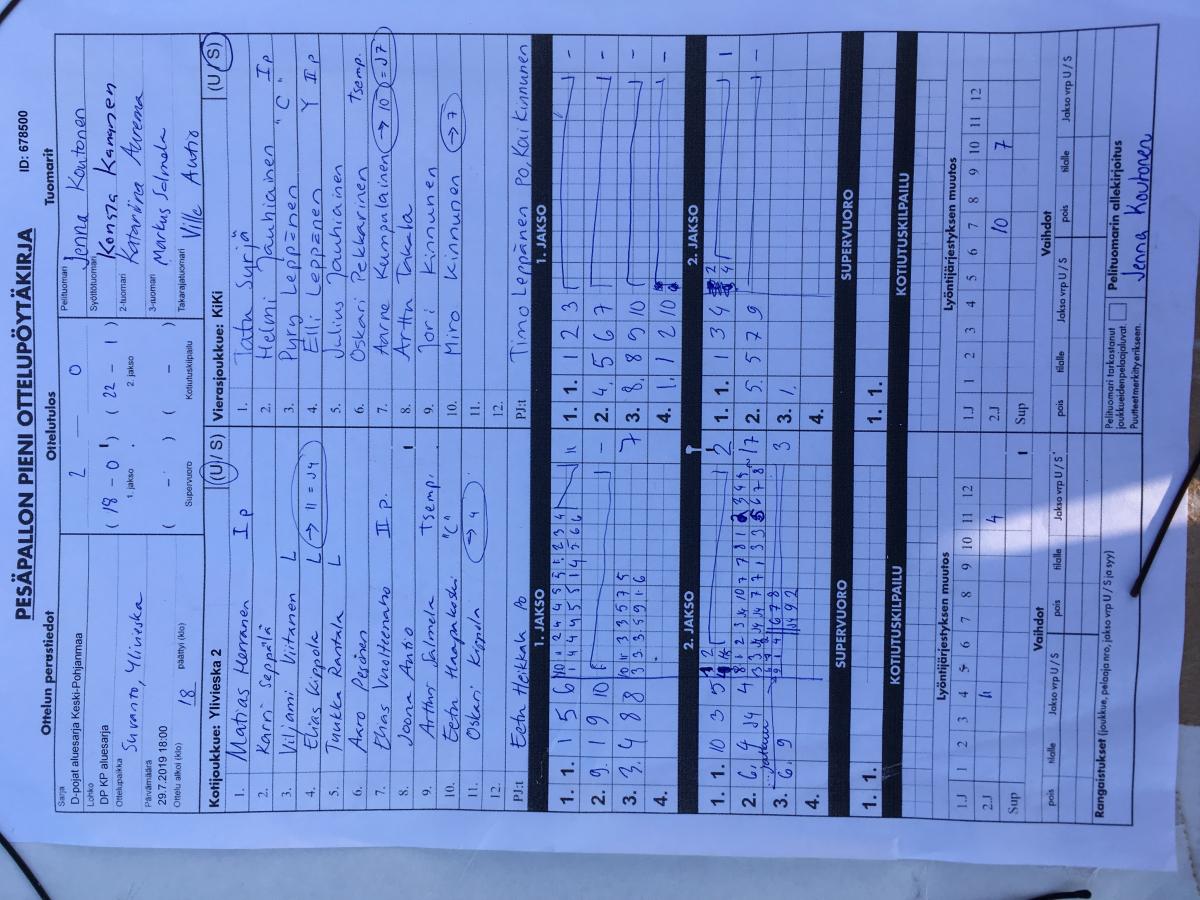 PESÄPALLON PIENI OTTELUPÖYTÄKIRJA ID: 678500
Ottelun perustiedot Ottelutulos Tuomarit
Sarja
D-pojat aluesarja Keski-Pohjanmaa
Lohko
DP KP aluesarja
Ottelupaikka
Suvanto, Ylivieska
Päivämäärä
29.7.2019 18:00
Ottelu alkoi (klo) 18 päättyi (klo)
2 — 0
( 18 - 0 ) ( 22 - 1 )
1. jakso 2. jakso
( - ) ( - )
Supervuoro Kotiutuskilpailu
Pelituomari Jenna Koutonen
Syöttötuomari Konsta Kamunen
2-tuomari Katariina Aurema
3-tuomari Markus Salmela
Takarajatuomari Ville Autio
Kotijoukkue: Ylivieska 2 (U / S)
1. Matias Herranen I p
2. Karri Seppälä
3. Viljami Viitanen L
4. Elias Kippola L (→ 11 = J4)
5. Tuukka Rantala L
6. Aaro Pesonen
7. Elias Vuolteenaho II p.
8. Joona Autio
9. Arthur Salmela Tsemp.
10. Eetu Haapakoski "C"
11. Oskari Kippola (→ 4)
12.
PJ:t Eetu Heikkala Po
Vierasjoukkue: KiKi (U / S)
1. Tatu Syrjä
2. Helmi Jauhiainen "C" I p
3. Pyry Leppänen
4. Elli Leppänen Y II p
5. Julius Jauhiainen
6. Oskari Pekkarinen tsemp.
7. Aarne Kumpulainen (→ 10 = J7)
8. Arttu Takala
9. Jori Kinnunen
10. Miro Kinnunen (→ 7)
11.
12.
PJ:t Timo Leppänen Porkai Kinnunen
1. JAKSO 1. JAKSO
1. 1. 1 5 6 11
2. 9. 1 9 10 -
3. 3. 4 8 8 7
4.
1. 1. 1 2 3 -
2. 4. 5 6 7 -
3. 8. 8 9 10 -
4. 1. 1 2 10 -
2. JAKSO 2. JAKSO
1. 1. 10 3 5 2
2. 6. 9 J4 4 17
3. 6. 9 3
4.
1. 1. 1 3 4 1
2. 5. 5 7 9 -
3. 1.
4.
SUPERVUORO SUPERVUORO
1. 1. 1. 1.
KOTIUTUSKILPAILU KOTIUTUSKILPAILU
Lyöntijärjestyksen muutos
1.J 1 2 3 4 5 6 7 8 9 10 11 12
2.J 11 4
Sup
Vaihdot
pois tilalle Jakso vrp U / S pois tilalle Jakso vrp U / S
Lyöntijärjestyksen muutos
1.J 1 2 3 4 5 6 7 8 9 10 11 12
2.J 10 7
Sup
Vaihdot
pois tilalle Jakso vrp U / S pois tilalle Jakso vrp U / S
Rangaistukset (joukkue, pelaajan nro, jakso vrp U / S ja syy)
Pelituomari tarkastanut
joukkueiden pelaajaluvat.
Puutteet merkitty erikseen.
Pelituomarin allekirjoitus
Jenna Koutonen